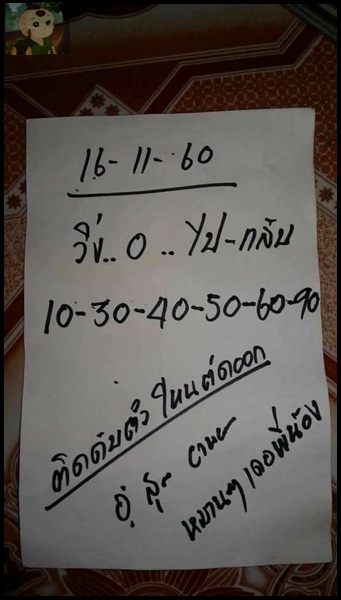 16-11-60
วิ่ง..0..ไป-กลับ
10-30-40-50-60-90
ติดดับตัวไหนตัดออก
หมานๆ เดอพี่น้อง